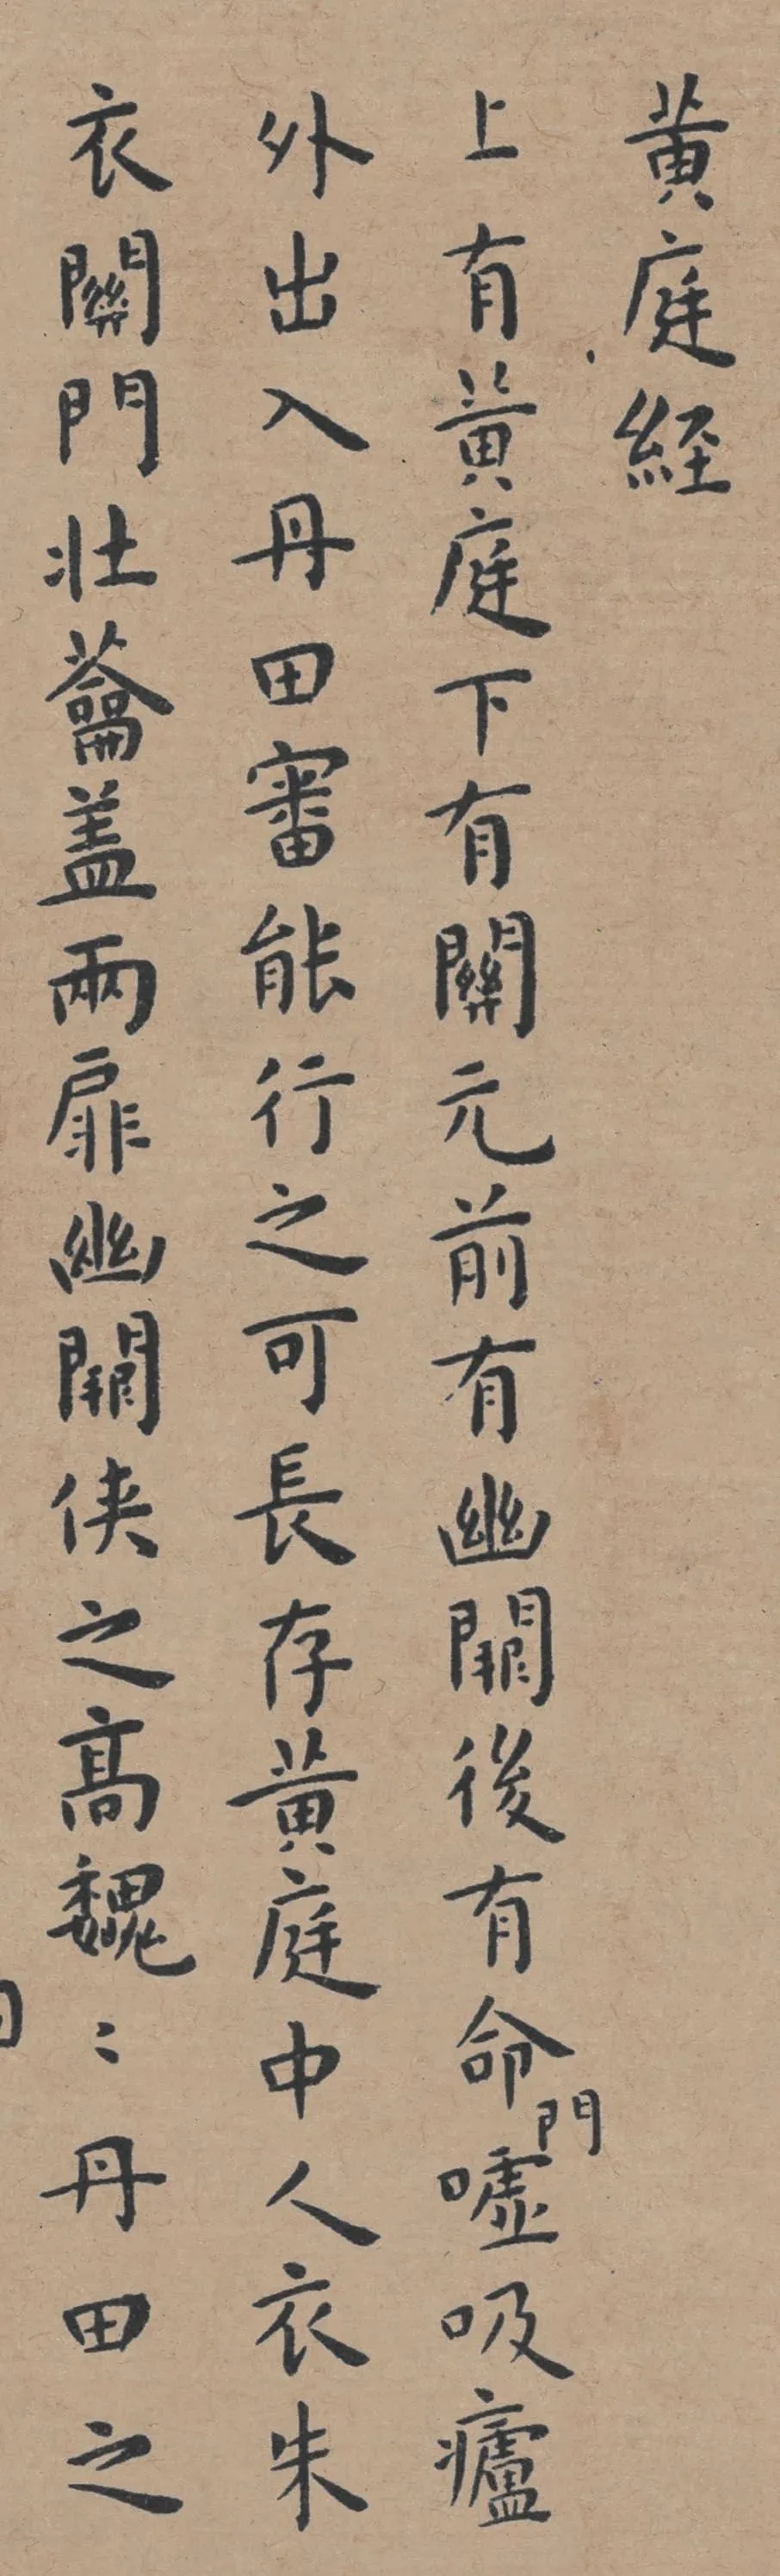 黃庭經
上有黃庭下有關元前有幽闕後有命門噓吸廬
外出入丹田審能行之可長存黃庭中人衣朱
衣關門壯蘥盖兩扉幽闕俠之高魏〻丹田之